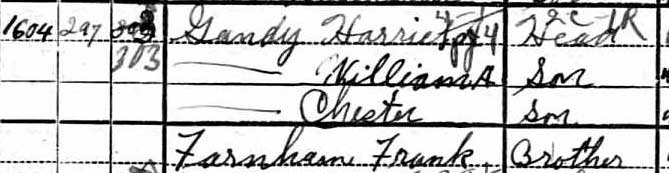 1604 297 Gandy Harriet Head
303 William A Son
Chester Son
Farnham Frank Brother